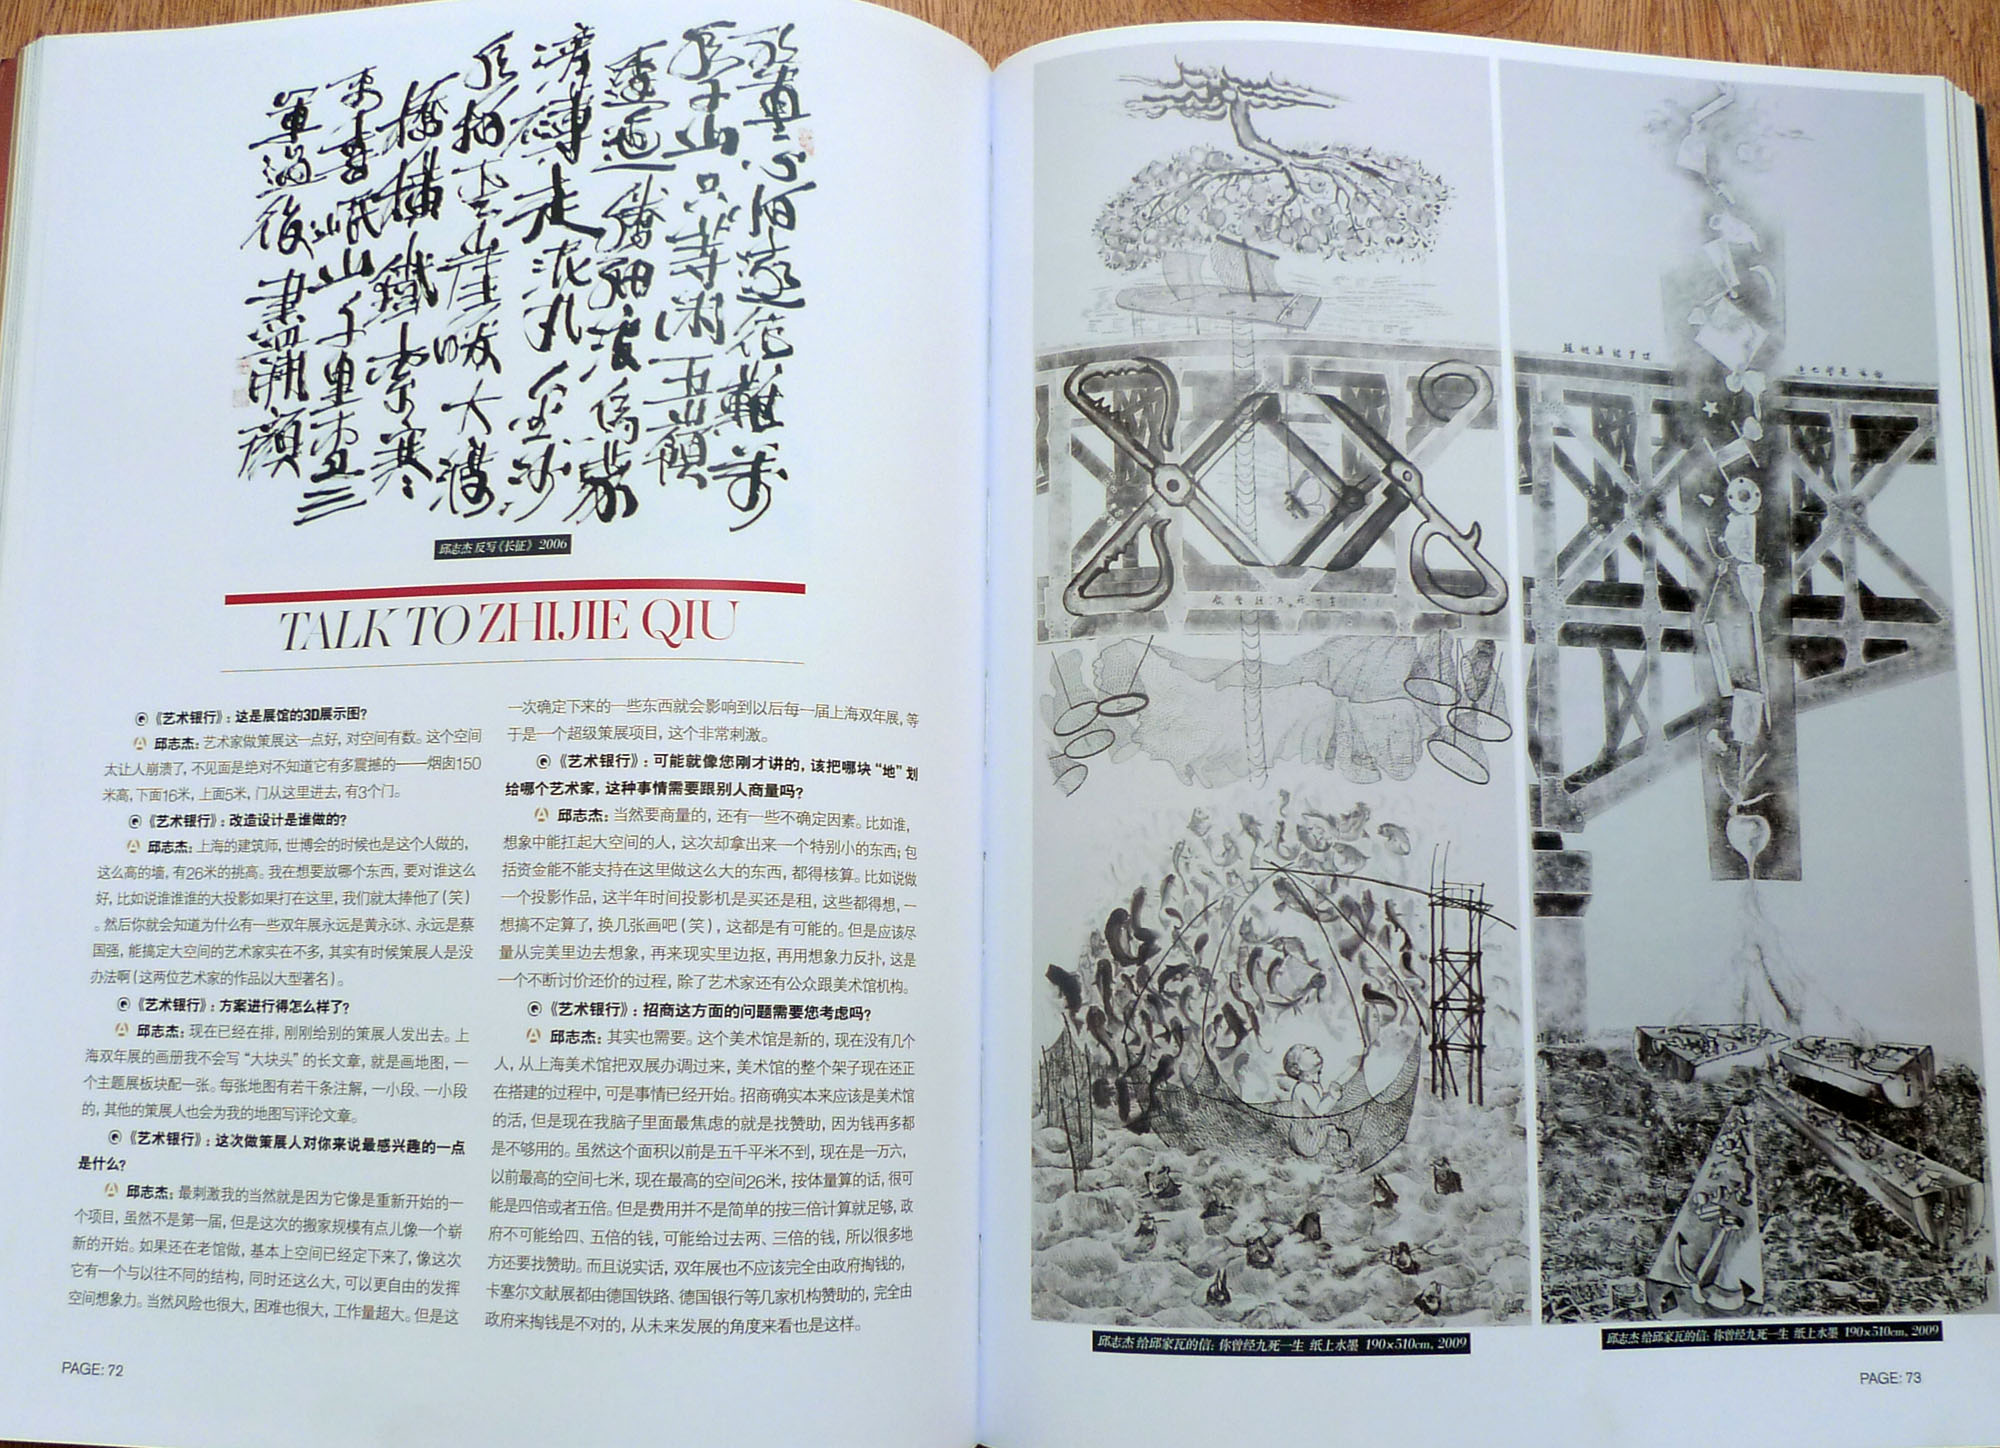 邱志杰 反写《长征》 2006
TALK TO ZHIJIE QIU
Q《艺术银行》：这是展馆的3D展示图？
A 邱志杰：艺术家做策展这一点好，对空间有数。这个空间
太让人崩溃了，不见面是绝对不知道它有多震撼的——烟囱150
米高，下面16米，上面5米，门从这里进去，有3个门。
Q《艺术银行》：改造设计是谁做的？
A 邱志杰：上海的建筑师，世博会的时候也是这个人做的，
这么高的墙，有26米的挑高。我在想要放哪个东西，要对谁这么
好，比如说谁谁谁的大投影如果打在这里，我们就太捧他了（笑）
。然后你就会知道为什么有一些双年展永远是黄永砅、永远是蔡
国强，能搞定大空间的艺术家实在不多，其实有时候策展人是没
办法啊（这两位艺术家的作品以大型著名）。
Q《艺术银行》：方案进行得怎么样了？
A 邱志杰：现在已经在排，刚刚给别的策展人发出去。上
海双年展的画册我不会写“大块头”的长文章，就是画地图，一
个主题展板块配一张。每张地图有若干条注解，一小段、一小段
的，其他的策展人也会为我的地图写评论文章。
Q《艺术银行》：这次做策展人对你来说最感兴趣的一点
是什么？
A 邱志杰：最刺激我的当然就是因为它像是重新开始的一
个项目，虽然不是第一届，但是这次的搬家规模有点儿像一个崭
新的开始。如果还在老馆做，基本上空间已经定下来了，像这次
它有一个与以往不同的结构，同时还这么大，可以更自由的发挥
空间想象力。当然风险也很大，困难也很大，工作量超大。但是这
一次确定下来的一些东西就会影响到以后每一届上海双年展，等
于是一个超级策展项目，这个非常刺激。
Q《艺术银行》：可能就像您刚才讲的，该把哪块“地”划
给哪个艺术家，这种事情需要跟别人商量吗？
A 邱志杰：当然要商量的，还有一些不确定因素。比如谁，
想象中能扛起大空间的人，这次却拿出来一个特别小的东西；包
括资金能不能支持在这里做这么大的东西，都得核算。比如说做
一个投影作品，这半年时间投影机是买还是租，这些都得想，一
想搞不定算了，换几张画吧（笑），这都是有可能的。但是应该尽
量从完美里边去想象，再来现实里边抠，再用想象力反扑，这是
一个不断讨价还价的过程，除了艺术家还有公众跟美术馆机构。
Q《艺术银行》：招商这方面的问题需要您考虑吗？
A 邱志杰：其实也需要。这个美术馆是新的，现在没有几个
人，从上海美术馆把双展办调过来，美术馆的整个架子现在还正
在搭建的过程中，可是事情已经开始。招商确实本来应该是美术馆
的活，但是现在我脑子里面最焦虑的就是找赞助，因为钱再多都
是不够用的。虽然这个面积以前是五千平米不到，现在是一万六，
以前最高的空间七米，现在最高的空间26米，按体量算的话，很可
能是四倍或者五倍。但是费用并不是简单的按三倍计算就足够，政
府不可能给四、五倍的钱，可能给过去两、三倍的钱，所以很多地
方还要找赞助。而且说实话，双年展也不应该完全由政府掏钱的，
卡塞尔文献展都由德国铁路、德国银行等几家机构赞助的，完全由
政府来掏钱是不对的，从未来发展的角度来看也是这样。
PAGE: 72
邱志杰 给邱家瓦的信：你曾经九死一生 纸上水墨 190×510cm, 2009
邱志杰 给邱家瓦的信：你曾经九死一生 纸上水墨 190×510cm, 2009
PAGE: 73